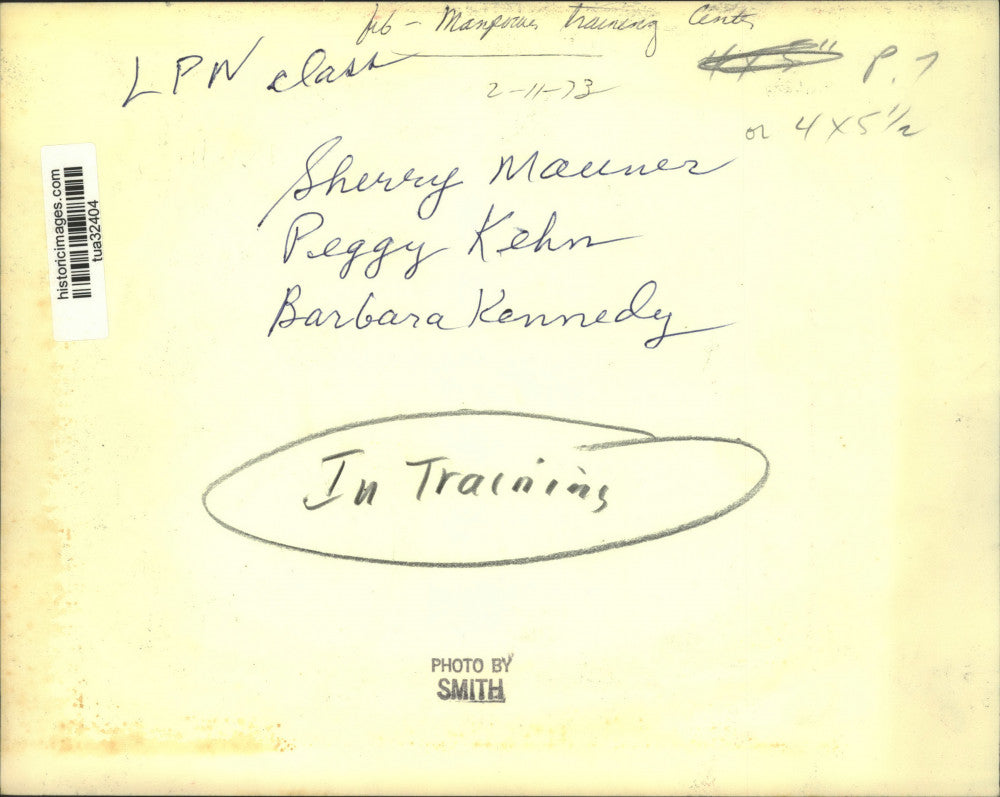 Manpower Training Center
LPN class
2-11-73
4x5" P. 7
or 4x5 1/2
Sherry Mauner
Peggy Kehn
Barbara Kennedy
In Training
PHOTO BY
SMITH
historicimages.com
tua32404